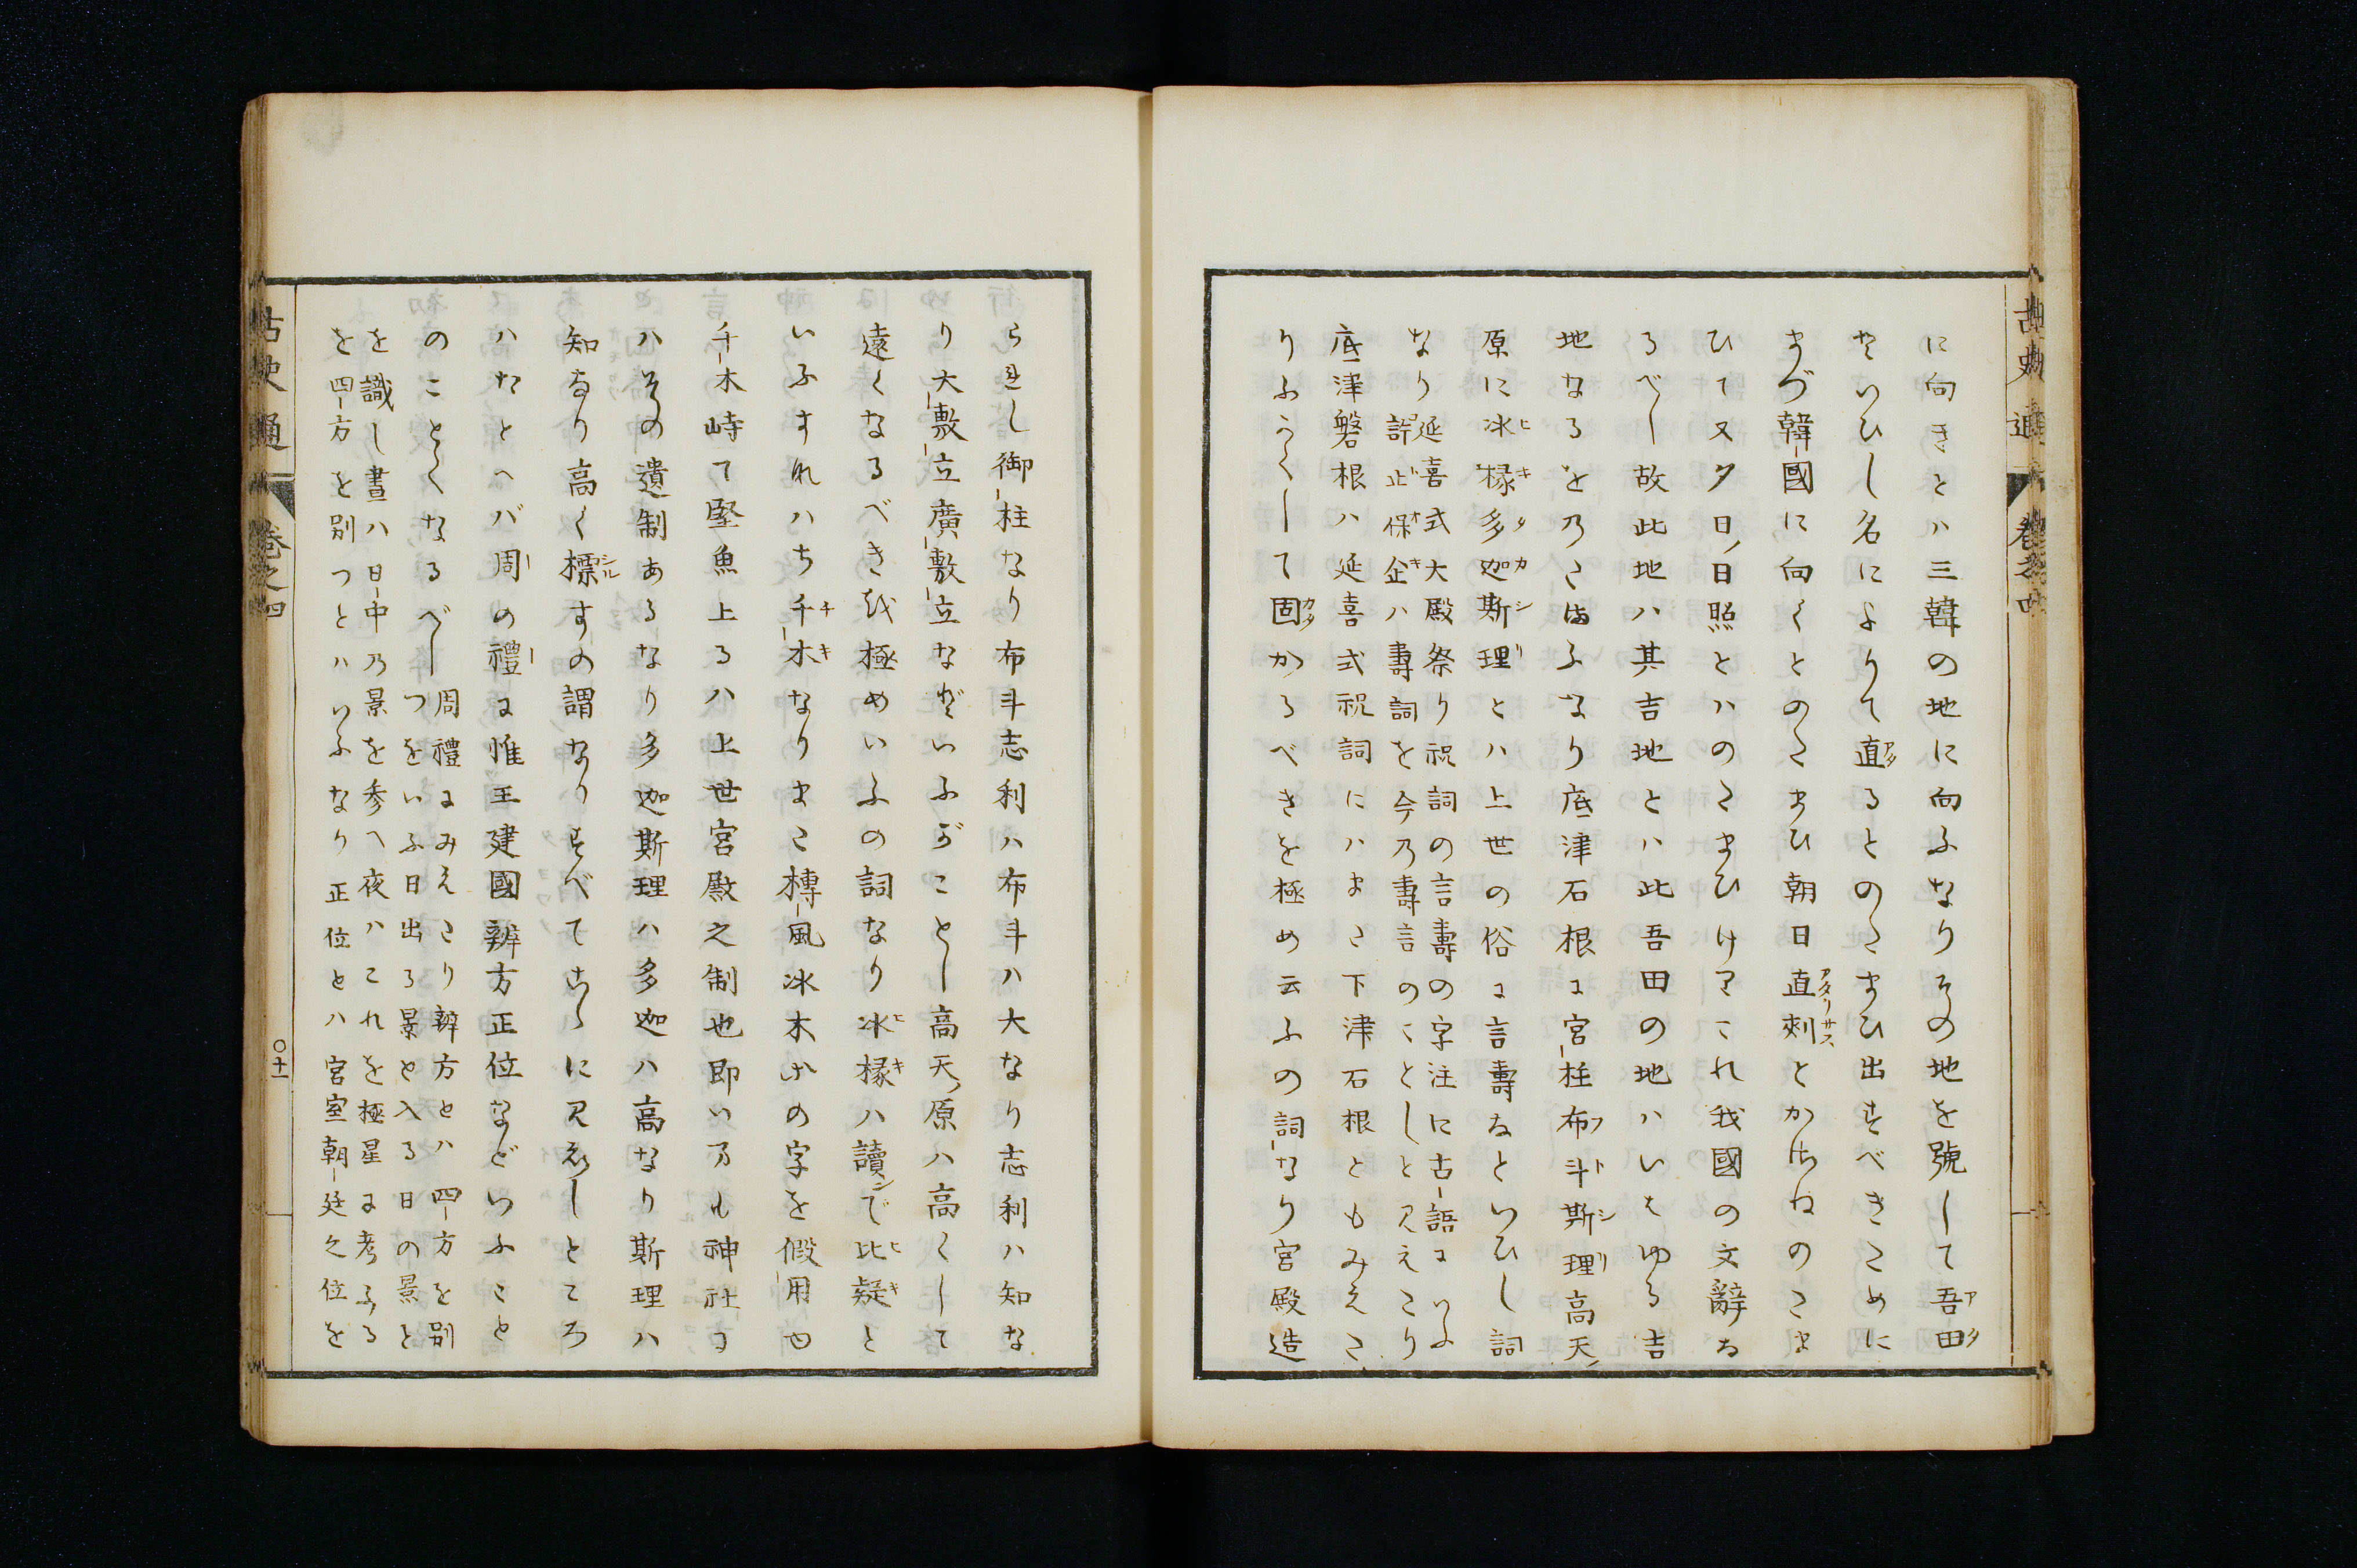 古史通 卷之四
に向きとハ三韓の地に向ふなりその地を號して吾田
といひし名によりて直るとのたまひ出すべきために
まづ韓國に向くとのたまひ朝日直刺とかさねのたま
ひて又夕日ノ日照とハのたまひけりこれ我國の文辭な
るべし故此地ハ其吉地とハ此吾田の地ハいはゆる吉
地なるをのたまふなり底津石根に宮柱布斗斯理高天ノ
原に冰椽多迦斯理とハ上世の俗に言壽などいひし詞
なり延喜式大殿祭り祝詞の言壽の字注に古語にいふ
許止保企ハ壽詞を今乃壽言のことしと見えたり
底津磐根ハ延喜式祝詞にハまた下津石根ともみえた
りふかくして固かるべきを極め云ふの詞なり宮殿造
られし御柱なり布斗志利ハ布斗ハ大なり志利ハ知な
り大敷立廣敷立などいふがことし高天ノ原ハ高くして
遠くなるべきを極めいふの詞なり冰椽ハ讀で比疑と
いふすれハち千木なりまた榑風冰木等の字を假用ゆ
千木峙て堅魚上るハ上世宮殿之制也即いまも神社に
ハその遺制あるなり多迦斯理ハ多迦ハ高なり斯理ハ
知なり高く標すの謂なりすべてこゝに見えしところ
ハたとへバ周の禮に惟王建國辨方正位などいふこと
のことくなるべし周禮にみえたり辨方とハ四方を別
つをいふ日出る景と入る日の景と
を識し晝ハ日中乃景を参へ夜ハこれを極星に考ふる
を四方を別つとハいふなり正位とハ宮室朝廷之位を
古史通 卷之四
〇十一